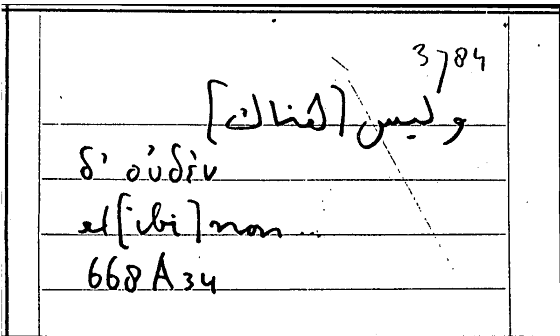 3784
وليس [هناك]
δ' οὐδὲν
et [ibi] non ..
668 A 34